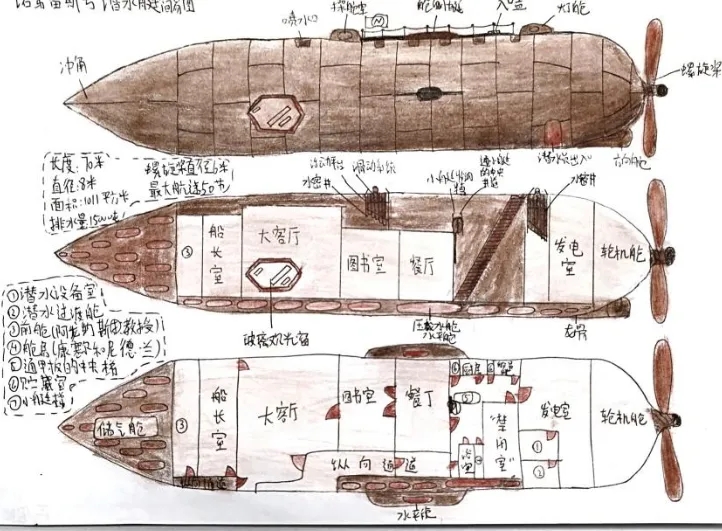 潜水艇
喷水口
入口
灯舱
冲角
螺旋桨
长度:70米
直径:8米
面积:1011平方米
排水量:1500吨
螺旋桨直径6米
最大航速50节
水密井
水密井
③
船长室
大客厅
图书室
餐厅
发电室
轮机舱
玻璃观光窗
压载水舱
龙骨
①潜水设备室
②潜水过渡舱
③前舱(阿龙纳斯教授)
④舱房(康塞尔和尼德·兰)
⑤通甲板的扶梯
⑥贮藏室
⑦小艇楼梯
储气舱
③
船长室
大客厅
图书室
餐厅
厨房
⑤
浴室
"禁闭室"
发电室
①
②
轮机舱
纵向通道
纵向通道
水平舵